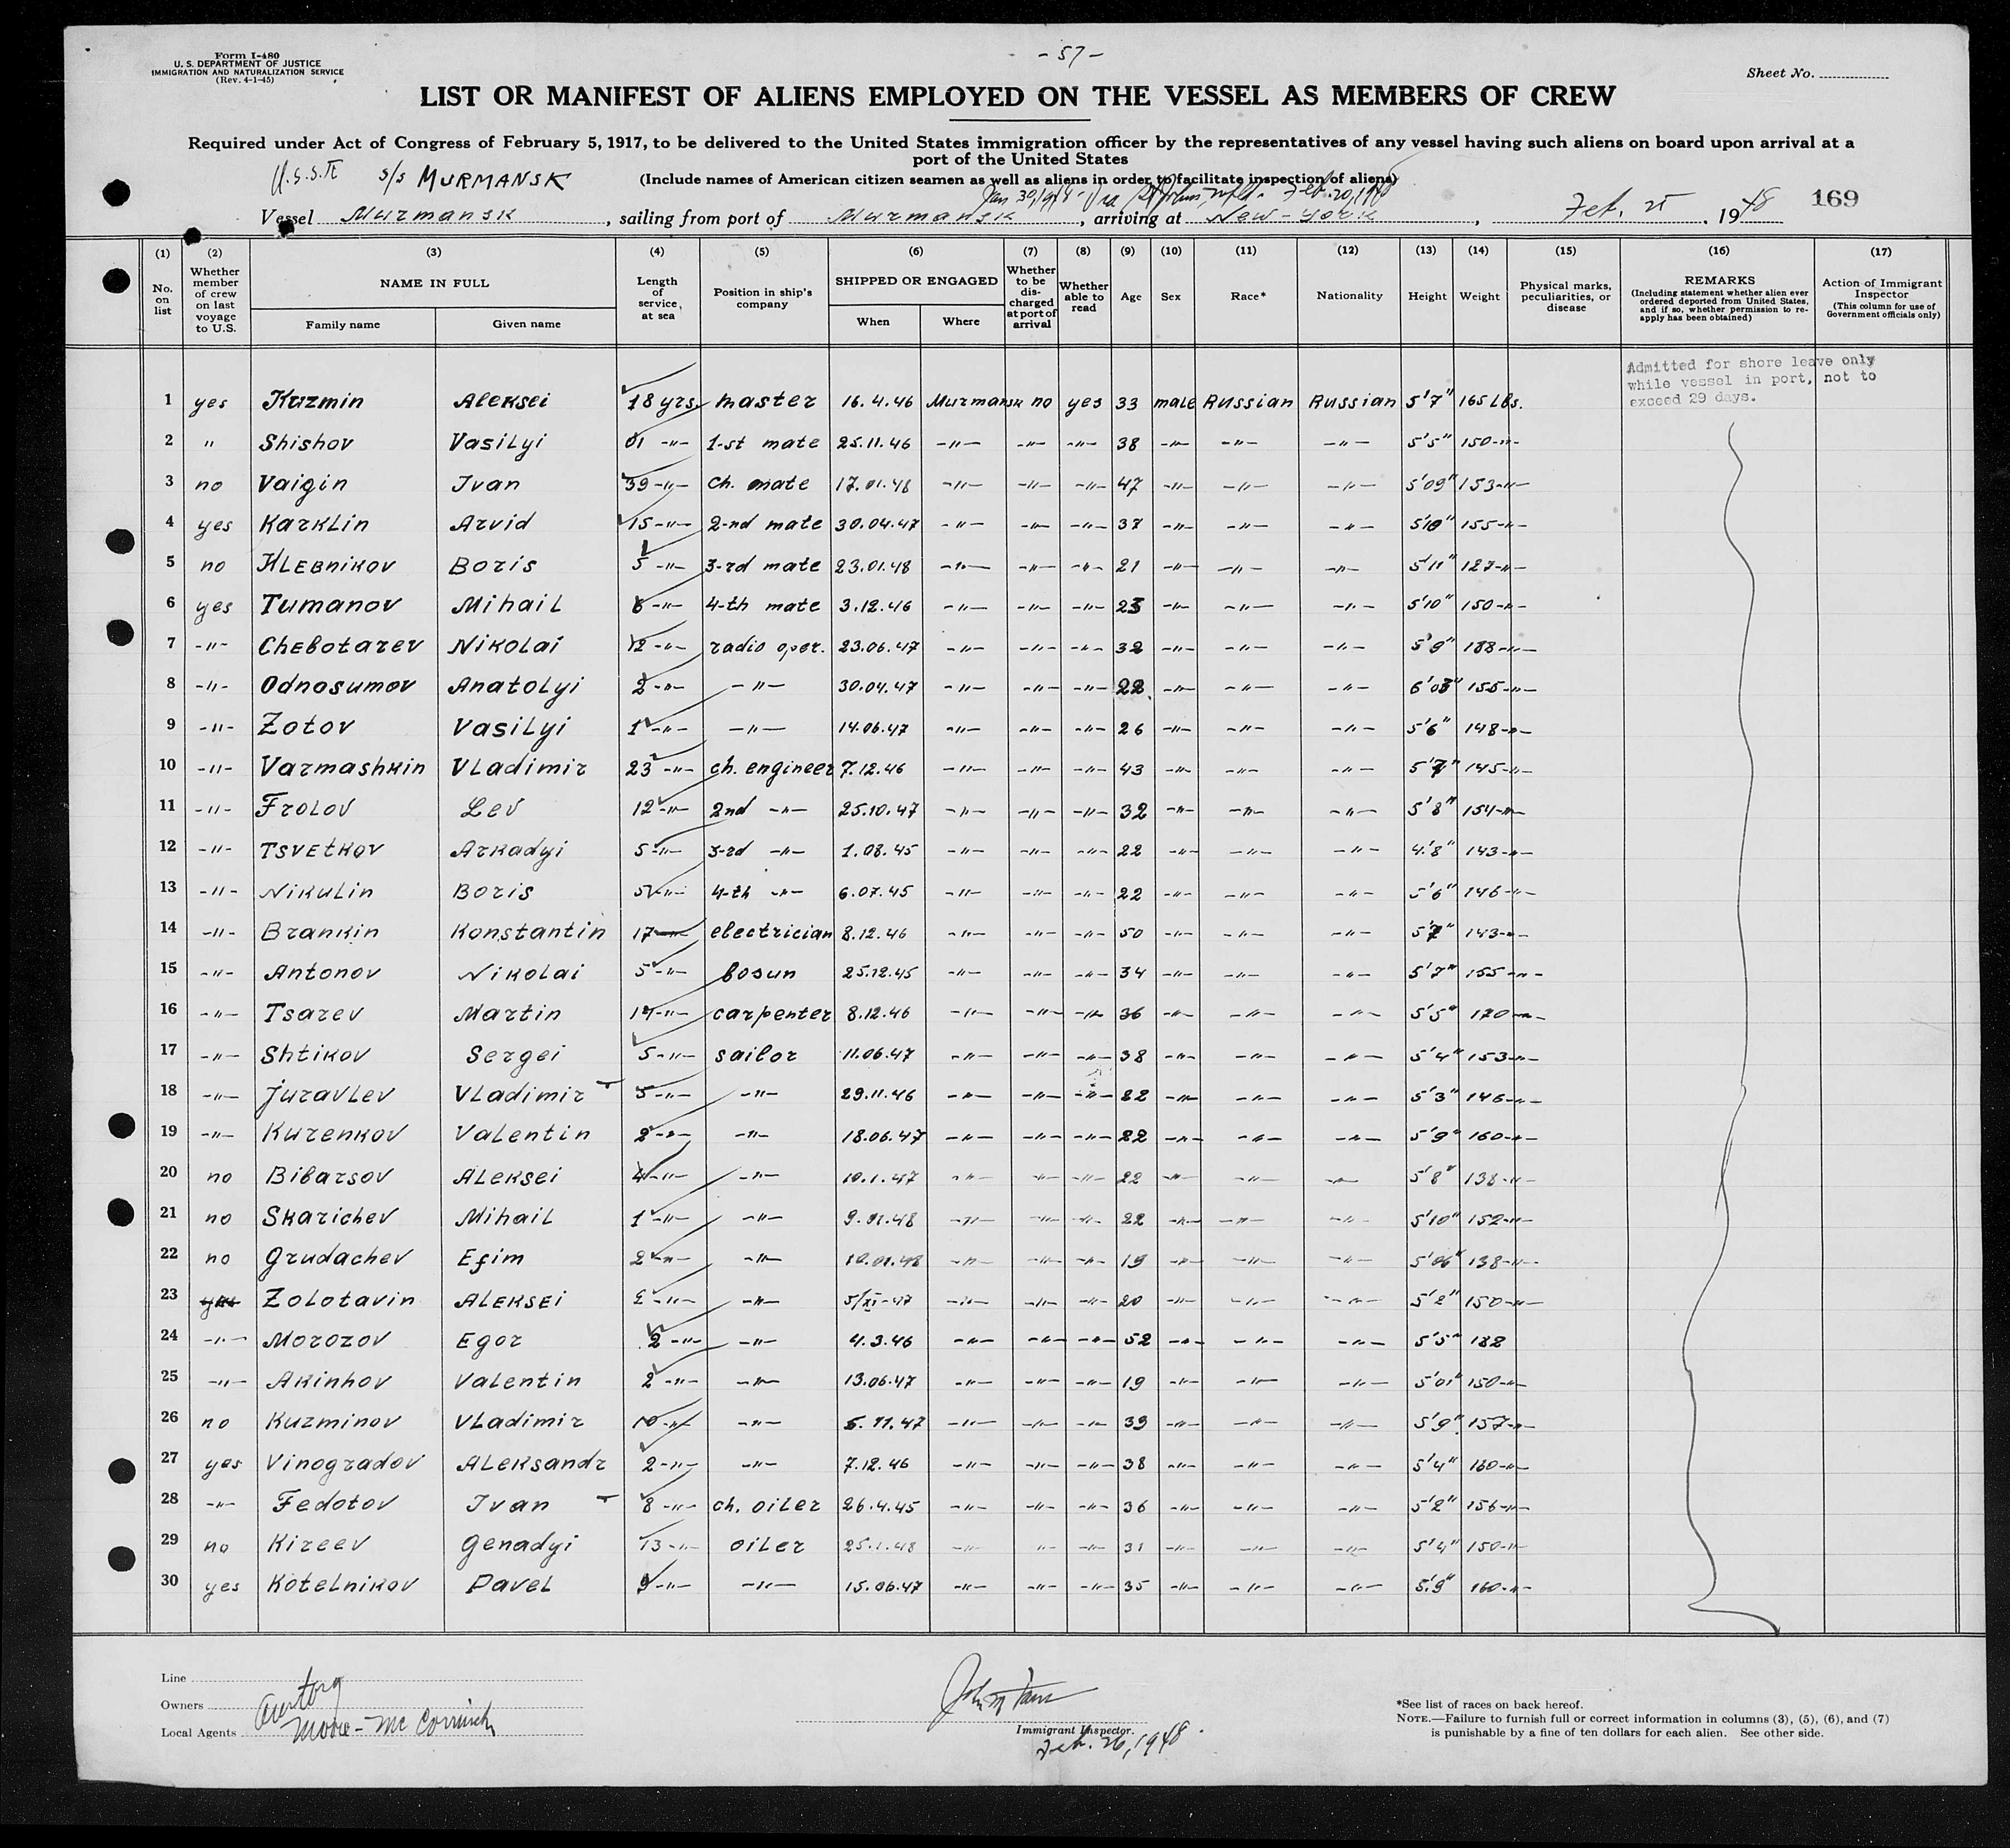 Form I-480
U. S. DEPARTMENT OF JUSTICE
IMMIGRATION AND NATURALIZATION SERVICE
(Rev. 4-1-45)
- 57 -
Sheet No.
LIST OR MANIFEST OF ALIENS EMPLOYED ON THE VESSEL AS MEMBERS OF CREW
Required under Act of Congress of February 5, 1917, to be delivered to the United States immigration officer by the representatives of any vessel having such aliens on board upon arrival at a
port of the United States
s/s MURMANSK (Include names of American citizen seamen as well as aliens in order to facilitate inspection of aliens)
Jan 30, 1948 - Via St Johns, Nfld. Feb. 20, 1948
Vessel Murmansk, sailing from port of Murmansk, arriving at New-York, Feb. 25, 1948 169
(1) (2) (3) (4) (5) (6) (7) (8) (9) (10) (11) (12) (13) (14) (15) (16) (17)
No. on list
Whether member of crew on last voyage to U.S.
NAME IN FULL
Family name
Given name
Length of service at sea
Position in ship's company
SHIPPED OR ENGAGED
When
Where
Whether to be discharged at port of arrival
Whether able to read
Age
Sex
Race*
Nationality
Height
Weight
Physical marks, peculiarities, or disease
REMARKS
(Including statement whether alien ever ordered deported from United States, and if so, whether permission to reapply has been obtained)
Action of Immigrant Inspector
(This column for use of Government officials only)
Admitted for shore leave only
while vessel in port, not to
exceed 29 days.
1 yes Kuzmin Aleksei 18 yrs. master 16.4.46 Murmansk no yes 33 male Russian Russian 5'7" 165 Lbs.
2 " Shishov Vasilyi -"- 1-st mate 25.11.46 -"- -"- -"- 38 -"- -"- -"- 5'5" 150-"-
3 no Vaigin Ivan 39-"- ch. mate 17.01.48 -"- -"- -"- 47 -"- -"- -"- 5'09" 153-"-
4 yes Karklin Arvid 15-"- 2-nd mate 30.04.47 -"- -"- -"- 37 -"- -"- -"- 5'10" 155-"-
5 no Klebnikov Boris 5-"- 3-rd mate 23.01.48 -"- -"- -"- 21 -"- -"- -"- 5'11" 127-"-
6 yes Tumanov Mihail 6-"- 4-th mate 3.12.46 -"- -"- -"- 25 -"- -"- -"- 5'10" 150-"-
7 -"- Chebotarev Nikolai 12-"- radio oper. 23.06.47 -"- -"- -"- 32 -"- -"- -"- 5'9" 188-"-
8 -"- Odnosumov Anatolyi 2-"- -"- 30.04.47 -"- -"- -"- 22 -"- -"- -"- 6'03" 155-"-
9 -"- Zotov Vasilyi 1-"- -"- 14.06.47 -"- -"- -"- 26 -"- -"- -"- 5'6" 148-"-
10 -"- Varmashkin Vladimir 23-"- ch. engineer 7.12.46 -"- -"- -"- 43 -"- -"- -"- 5'7" 145-"-
11 -"- Frolov Lev 12-"- 2nd -"- 25.10.47 -"- -"- -"- 32 -"- -"- -"- 5'8" 154-"-
12 -"- Tsvetkov Arkadyi 5-"- 3-rd -"- 1.08.45 -"- -"- -"- 22 -"- -"- -"- 4'8" 143-"-
13 -"- Nikulin Boris 5-"- 4-th -"- 6.07.45 -"- -"- -"- 22 -"- -"- -"- 5'6" 146-"-
14 -"- Brankin Konstantin 17-"- electrician 8.12.46 -"- -"- -"- 50 -"- -"- -"- 5'7" 143-"-
15 -"- Antonov Nikolai 5-"- bosun 25.12.45 -"- -"- -"- 34 -"- -"- -"- 5'7" 155-"-
16 -"- Tsarev Martin 14-"- carpenter 8.12.46 -"- -"- -"- 36 -"- -"- -"- 5'5" 170-"-
17 -"- Shtikov Sergei 5-"- sailor 11.06.47 -"- -"- -"- 38 -"- -"- -"- 5'4" 153-"-
18 -"- Juravlev Vladimir 5-"- -"- 29.11.46 -"- -"- -"- 22 -"- -"- -"- 5'3" 146-"-
19 -"- Kurenkov Valentin 2-"- -"- 18.06.47 -"- -"- -"- 22 -"- -"- -"- 5'9" 160-"-
20 no Bibarsov Aleksei 4-"- -"- 10.1.47 -"- -"- -"- 22 -"- -"- -"- 5'8" 138-"-
21 no Skarichev Mihail 1-"- -"- 9.01.48 -"- -"- -"- 22 -"- -"- -"- 5'10" 152-"-
22 no Grudachev Efim 2-"- -"- 10.01.48 -"- -"- -"- 19 -"- -"- -"- 5'06" 138-"-
23 yes Zolotavin Aleksei 2-"- -"- 5/XI-47 -"- -"- -"- 20 -"- -"- -"- 5'2" 150-"-
24 -"- Morozov Egor 2-"- -"- 4.3.46 -"- -"- -"- 52 -"- -"- -"- 5'5" 182
25 -"- Akinhov Valentin 2-"- -"- 13.06.47 -"- -"- -"- 19 -"- -"- -"- 5'01" 150-"-
26 no Kuzminov Vladimir 10-"- -"- 5.11.47 -"- -"- -"- 39 -"- -"- -"- 5'9" 157-"-
27 yes Vinogradov Aleksandr 2-"- -"- 7.12.46 -"- -"- -"- 38 -"- -"- -"- 5'4" 160-"-
28 -"- Fedotov Ivan 8-"- ch. oiler 26.4.45 -"- -"- -"- 36 -"- -"- -"- 5'2" 156-"-
29 no Kireev Genadyi 13-"- oiler 25.1.48 -"- -"- -"- 31 -"- -"- -"- 5'4" 150-"-
30 yes Kotelnikov Pavel 9-"- -"- 15.06.47 -"- -"- -"- 35 -"- -"- -"- 5'9" 160-"-
Line
Owners Amtorg
Local Agents Moore-McCormick
Immigrant Inspector.
Feb. 26, 1948.
*See list of races on back hereof.
NOTE.—Failure to furnish full or correct information in columns (3), (5), (6), and (7)
is punishable by a fine of ten dollars for each alien. See other side.